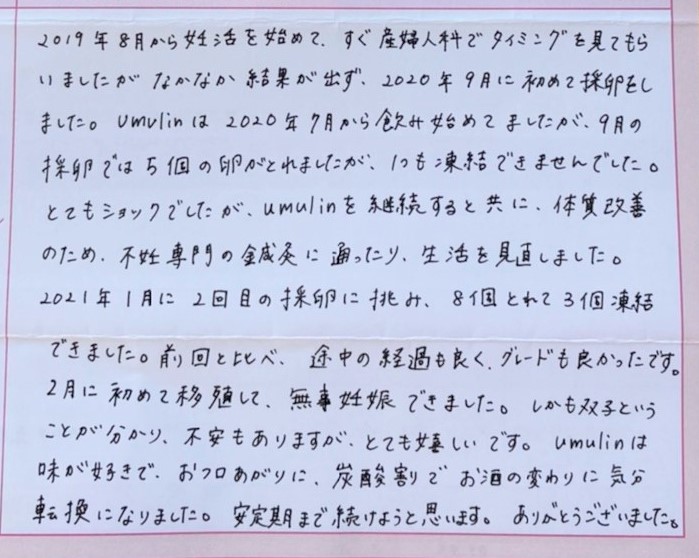 2019年8月から妊活を始めて、すぐ産婦人科でタイミングを見てもら
いましたがなかなか結果が出ず、2020年9月に初めて採卵をし
ました。umulinは2020年7月から飲み始めてましたが、9月の
採卵では5個の卵がとれましたが、1つも凍結できませんでした。
とてもショックでしたが、umulinを継続すると共に、体質改善
のため、不妊専門の鍼灸に通ったり、生活を見直しました。
2021年1月に2回目の採卵に挑み、8個とれて3個凍結
できました。前回と比べ、途中の経過も良く、グレードも良かったです。
2月に初めて移殖して、無事妊娠できました。しかも双子という
ことが分かり、不安もありますが、とても嬉しいです。umulinは
味が好きで、おフロあがりに、炭酸割りでお酒の変わりに気分
転換になりました。安定期まで続けようと思います。ありがとうございました。